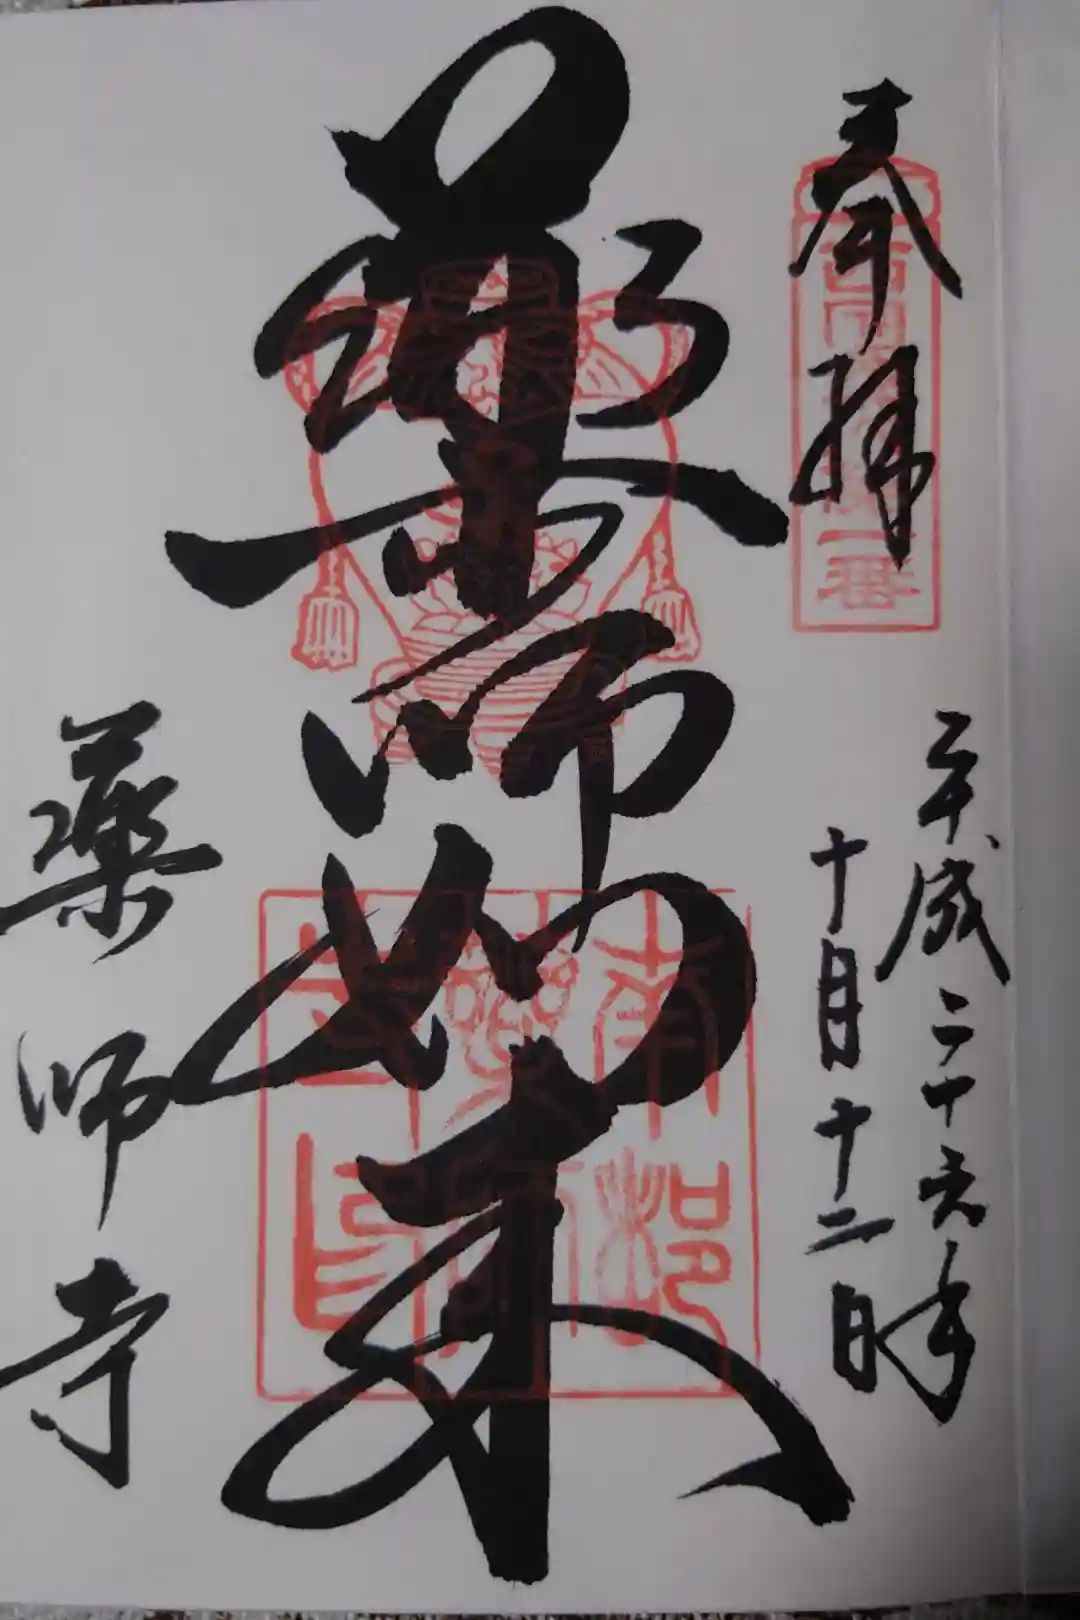 奉拝
西国薬師第一番
平成二十六年
十月十二日
薬師如来
南都
薬師寺